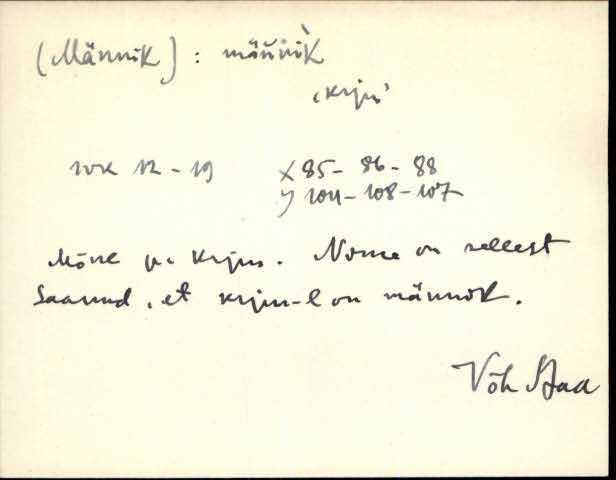 (Männik) : männik̀
‚krjm’
10K 12 - 19 X 85 - 86 - 88
y 104 - 108 - 107
krjm. Nome on sellest
saanud, et krjm-l on männik.
Võh Saa